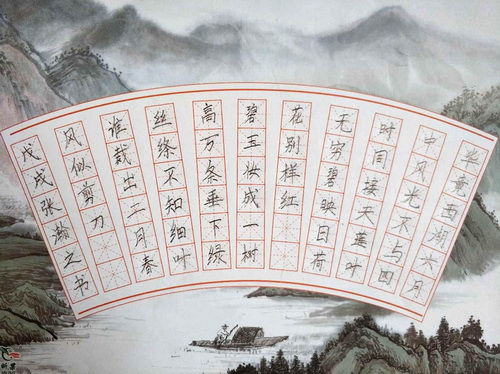 毕竟西湖六月
中风光不与四
时同接天莲叶
无穷碧映日荷
花别样红
碧玉妆成一树
高万条垂下绿
丝绦不知细叶
谁裁出二月春
风似剪刀
戊戌张之书